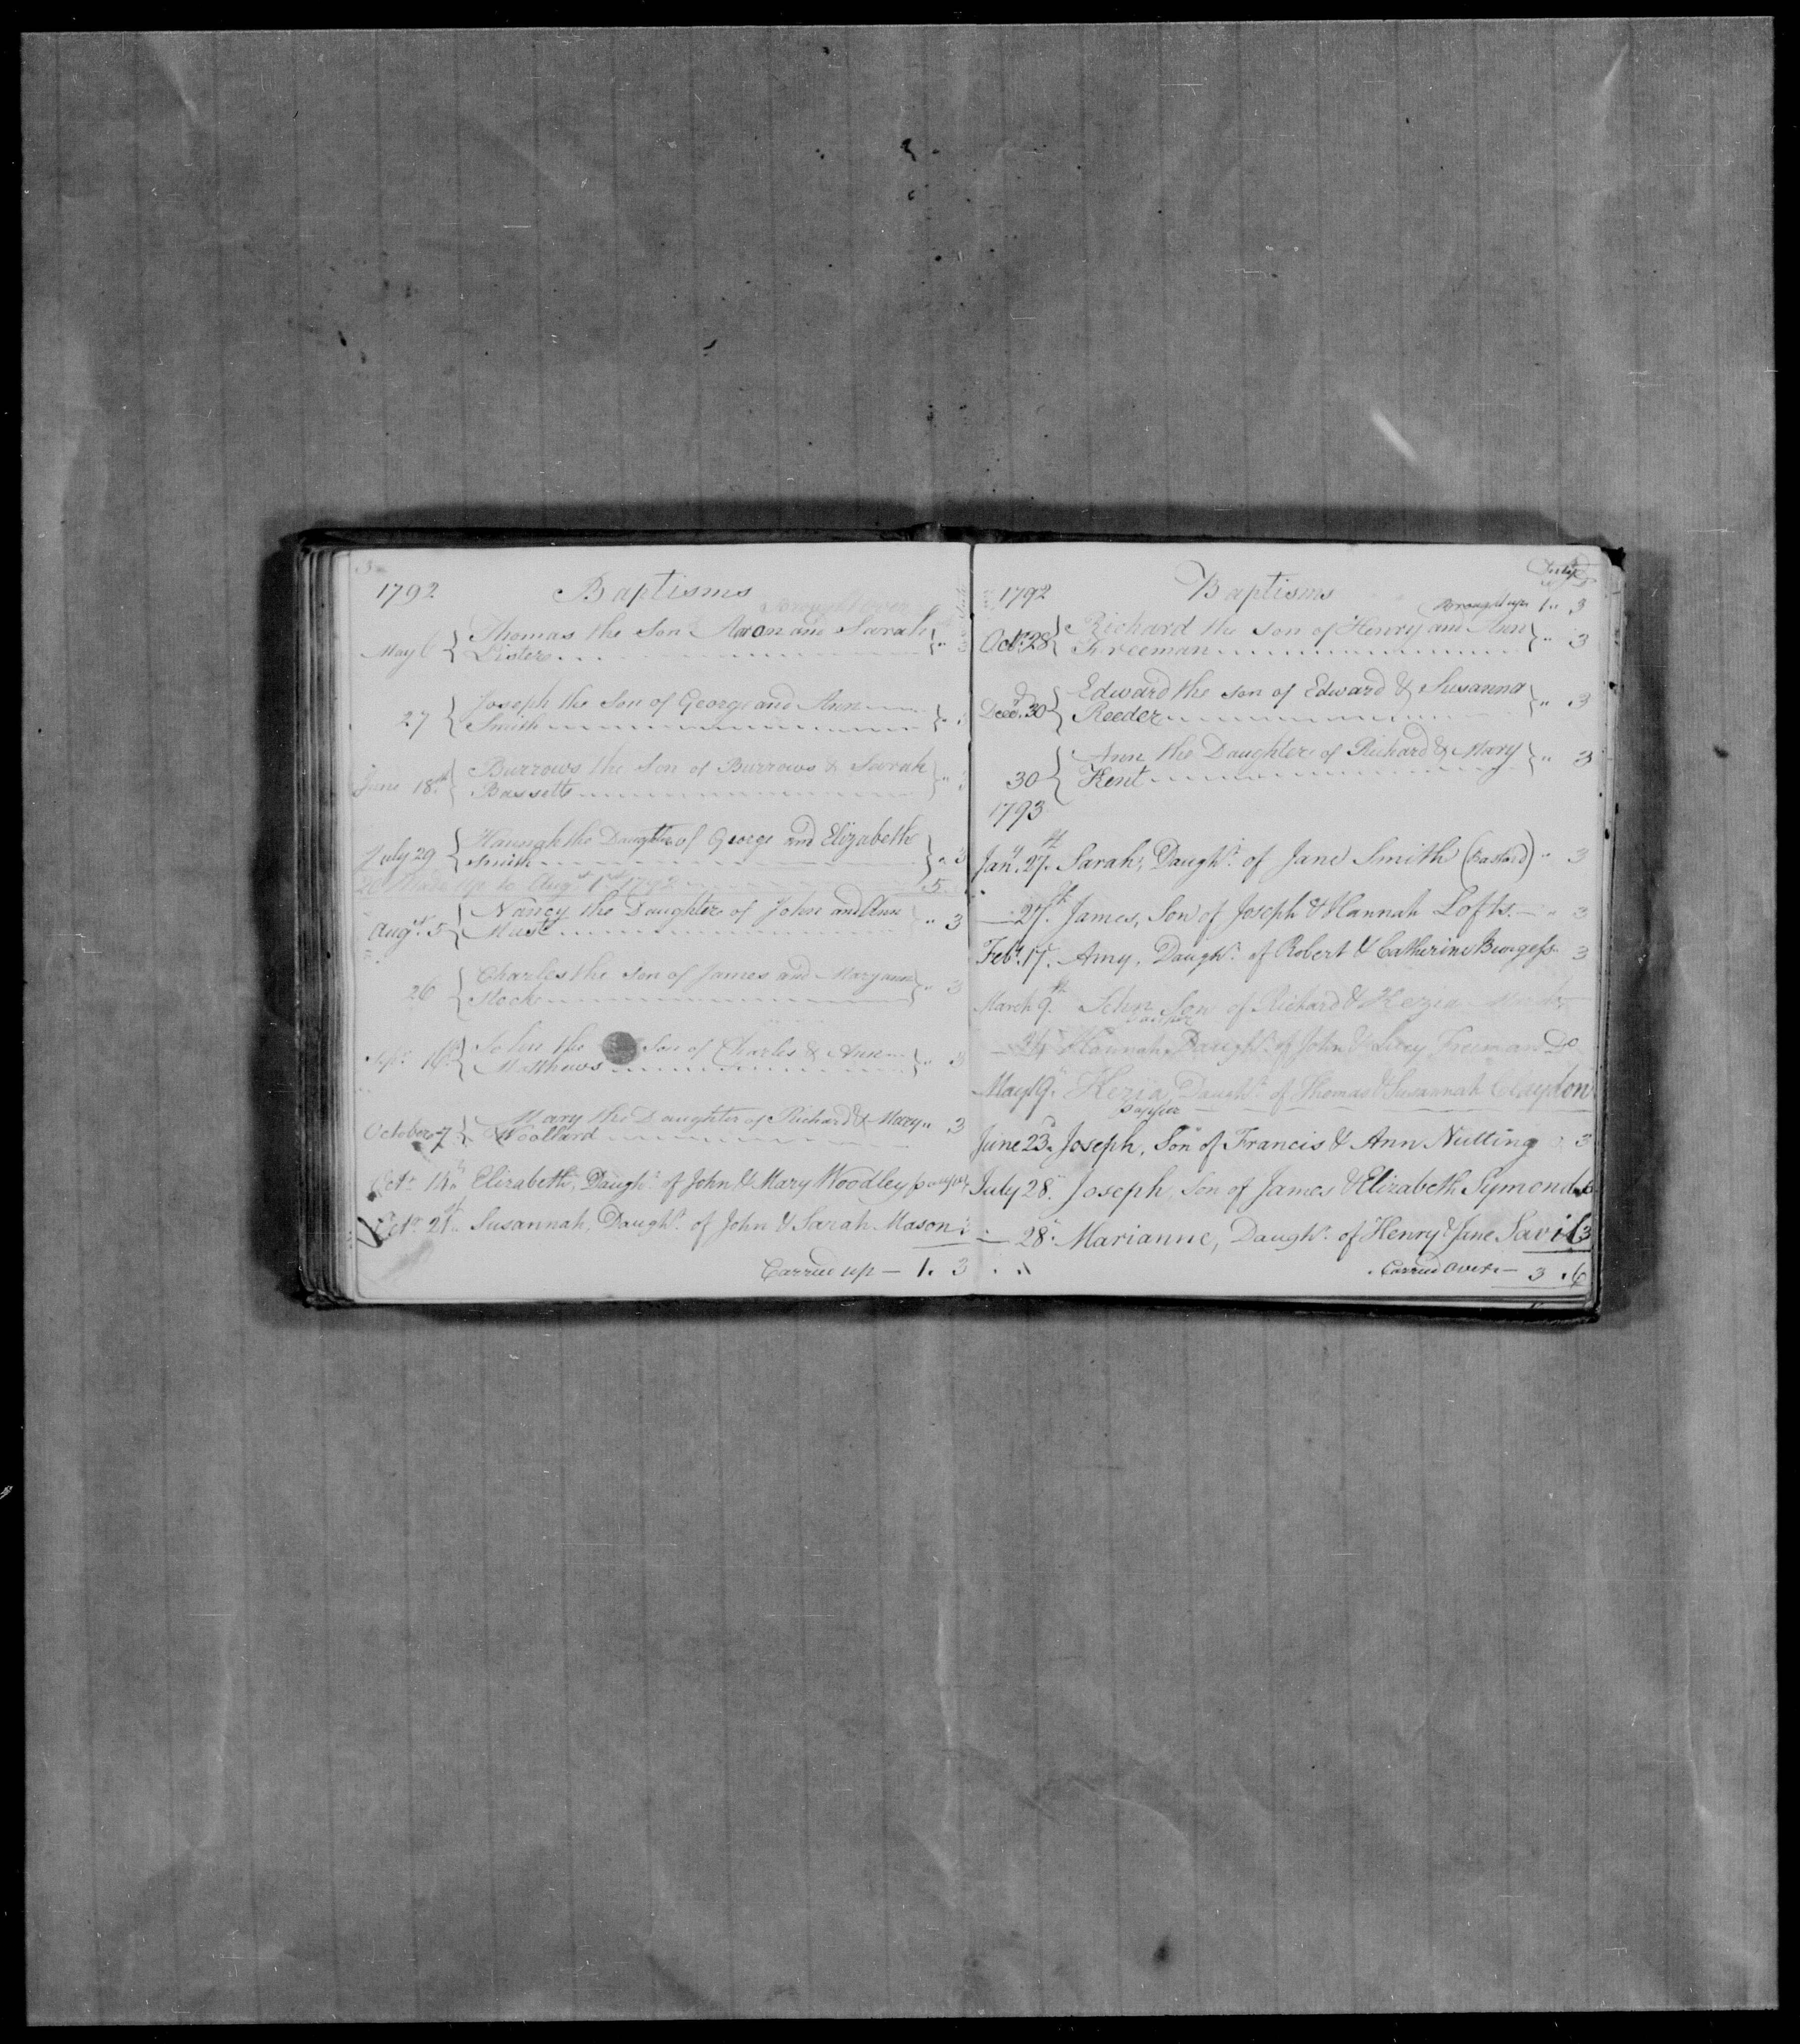 1792 Baptisms
Brought over
May 6 { Thomas the Son Aaron and Sarah } " 3
Lister
27 { Joseph the Son of George and Ann
Smith
June 18th { Burrows the Son of Burrows & Sarah
Bassett
July 29 { Hannah the Daughter of George and Elizabeth } " 3
Smith
to Augst 1st 1792 5
Augst 5 { Nancy the Daughter of John and Ann " 3
Muse
26 { Charles the Son of James and Maryann " 3
Stock
Sepr 16 { John the Son of Charles & Ann } " 3
Matthews
October 7 { Mary the Daughter of Richard & Mary " 3
Woollard
Octr 14th Elizabeth, Daughr of John & Mary Woodley pauper
Octr 21st Susannah, Daughr of John & Sarah Mason
Carried up — 1. 3
1792 Baptisms Duty
Brought up 1 " 3
Octr 28 { Richard the Son of Henry and Ann } " 3
Freeman
Decr 30 { Edward the Son of Edward & Susanna } " 3
Reeder
30 { Ann the Daughter of Richard & Mary } " 3
Kent
1793
Jany 27th Sarah, Daughr of Jane Smith (Bastard) " 3
— 27th James, Son of Joseph & Hannah Lofts — " 3
Feby 17. Amy, Daughr of Robert & Catherine Burgess 3
March 9th John Son of Richard & Kezia
pauper
Hannah Daughr of John & Lucy Freeman Do
May 19th Kezia, Daughr of Thomas & Susannah Claydon
pauper
June 23d Joseph, Son of Francis & Ann Nutting 3
July 28th Joseph, Son of James & Elizabeth Symonds
— 28th Marianne, Daughr of Henry & Jane Savil 3
Carried over — 3 . 6